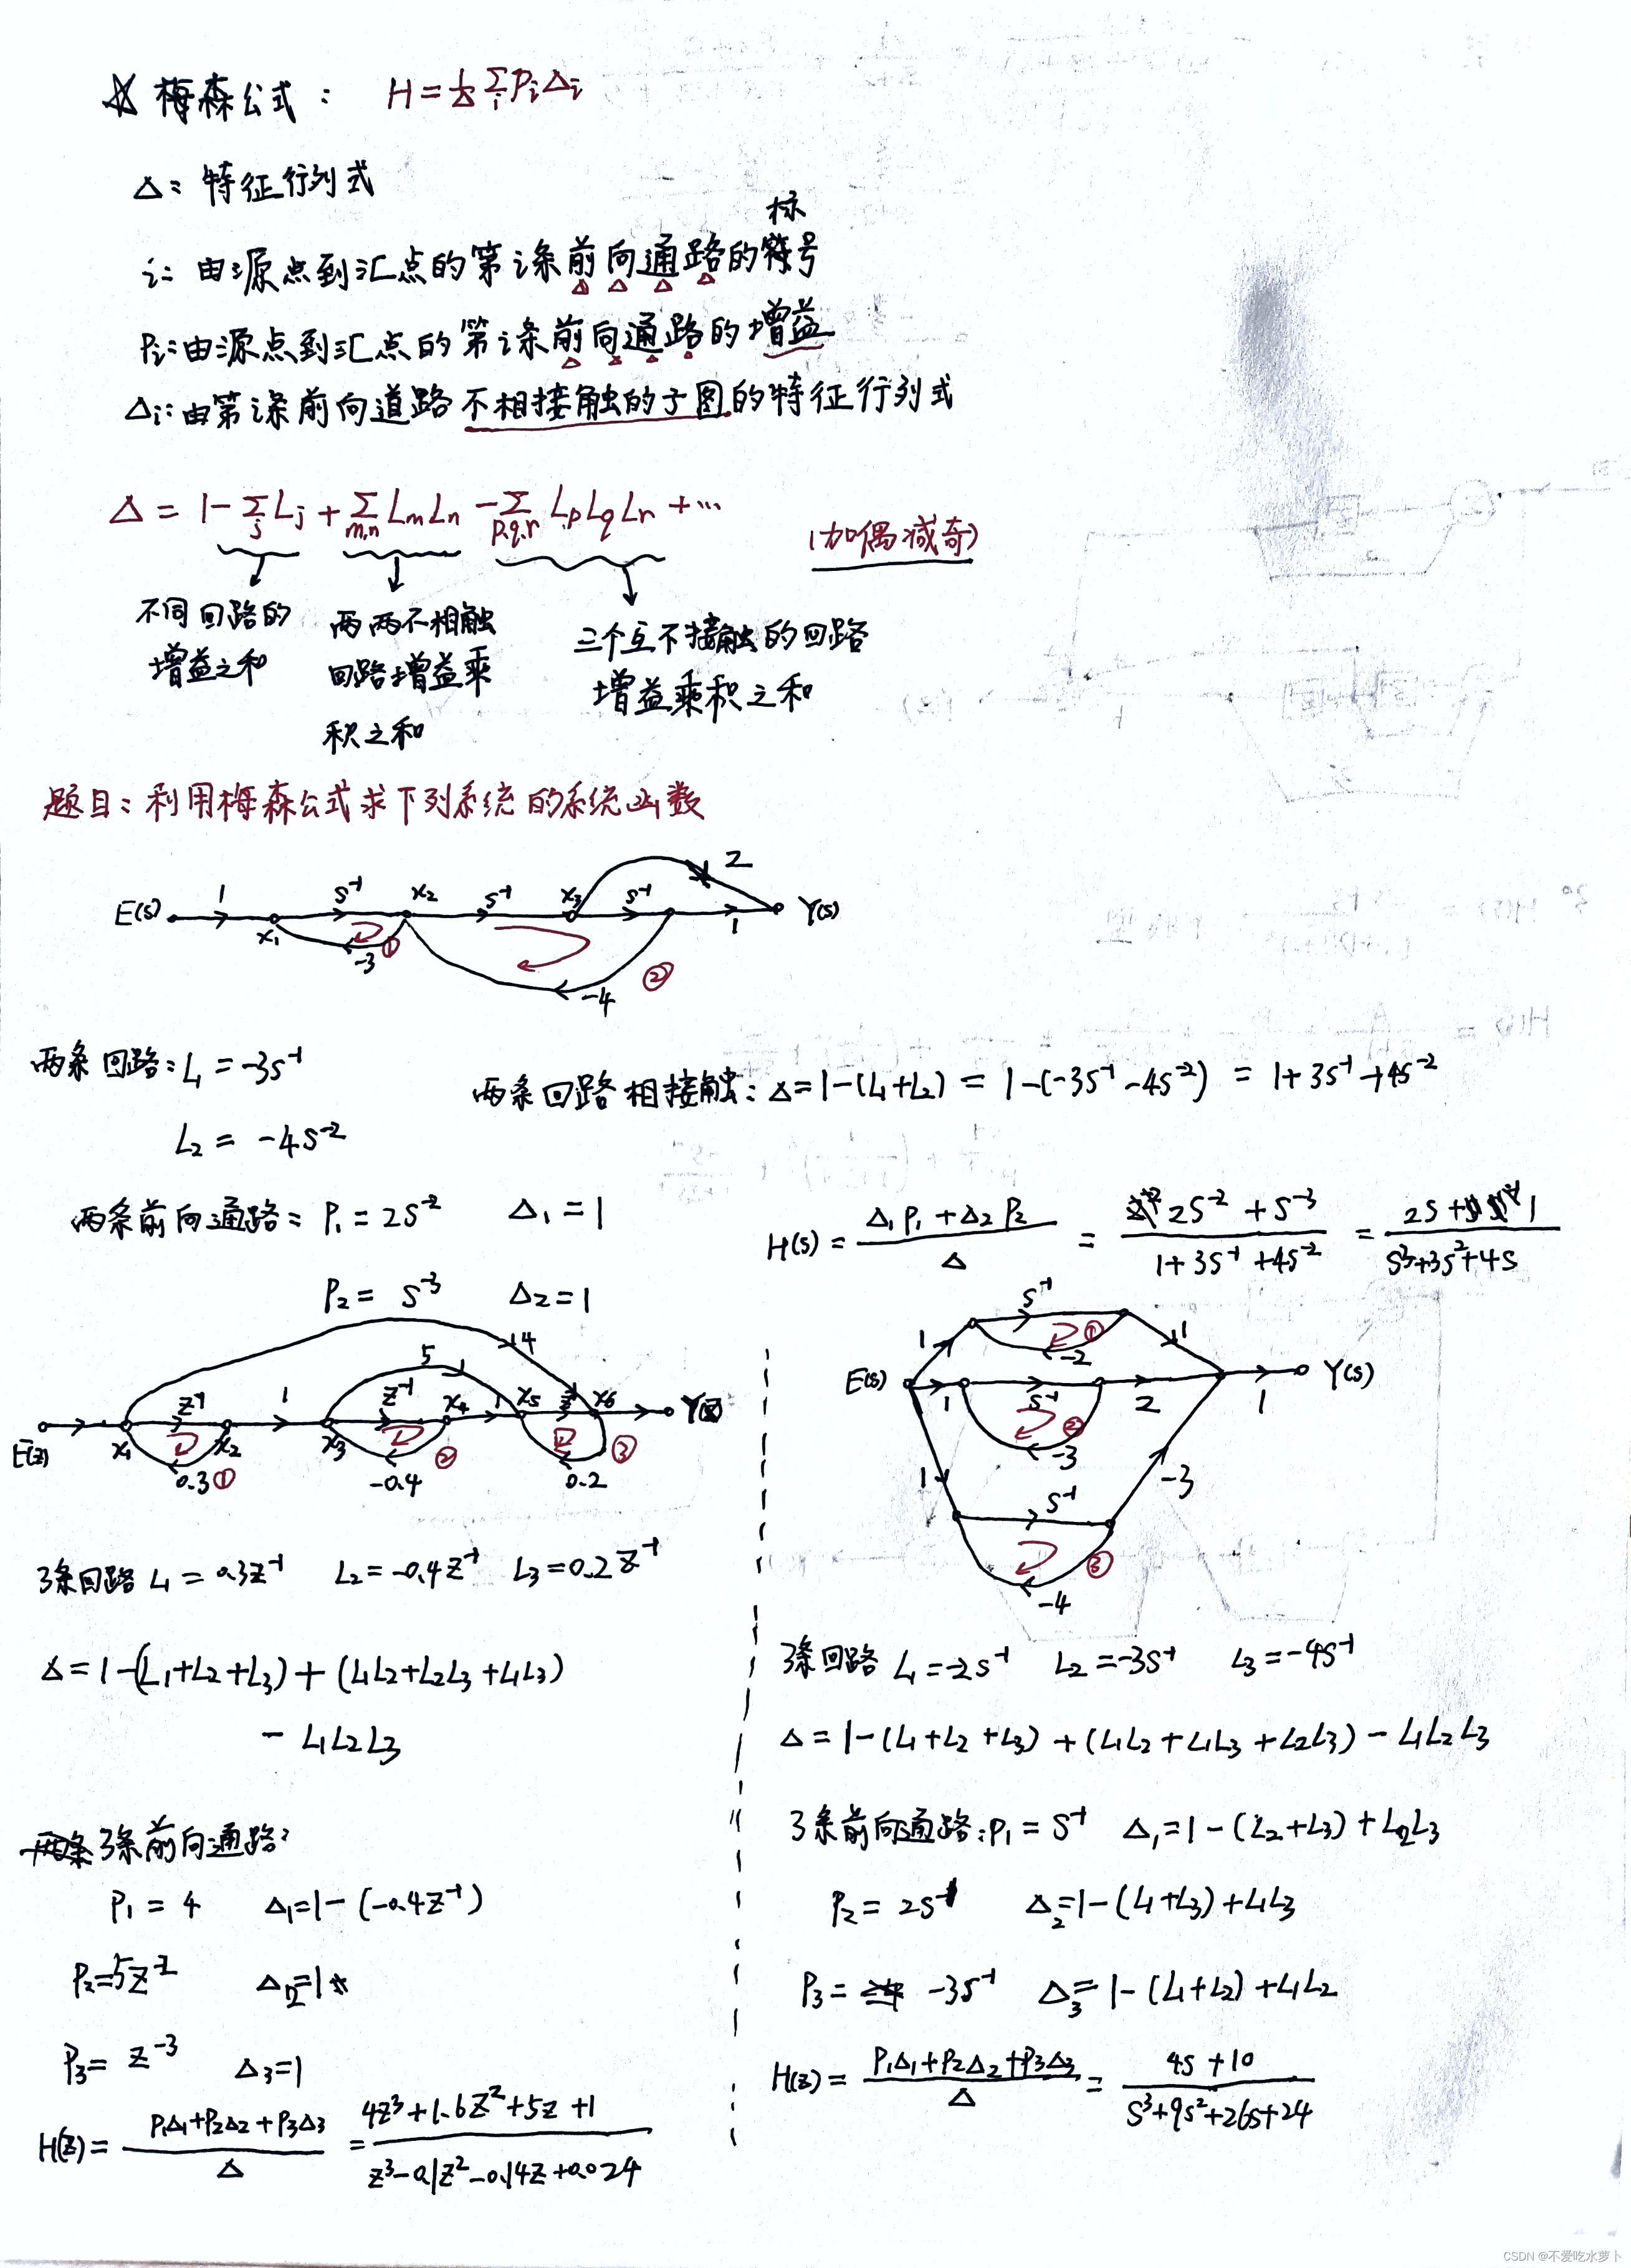 ☆ 梅森公式： H = 1/Δ Σi Pi Δi
Δ：特征行列式
i：由源点到汇点的第i条前向通路的标号
Pi：由源点到汇点的第i条前向通路的增益
Δi：由第i条前向道路不相接触的子图的特征行列式
Δ = 1 - Σj Lj + Σm,n Lm Ln - Σp,q,r Lp Lq Lr + …
(加偶减奇)
不同回路的增益之和
两两不相触回路增益乘积之和
三个互不接触的回路增益乘积之和
题目：利用梅森公式求下列系统的系统函数
E(s) 1 x1 s⁻¹ x2 s⁻¹ x3 s⁻¹ 2 1 Y(s)
-3 ① -4 ②
两条回路：L1 = -3s⁻¹
L2 = -4s⁻²
两条回路相接触：Δ=1-(L1+L2) = 1-(-3s⁻¹-4s⁻²) = 1+3s⁻¹+4s⁻²
两条前向通路： P1 = 2s⁻² Δ1 = 1
P2 = s⁻³ Δ2 = 1
H(s) = (Δ1P1+Δ2P2)/Δ = (2s⁻²+s⁻³)/(1+3s⁻¹+4s⁻²) = (2s+1)/(s³+3s²+4s)
E(z) x1 z⁻¹ x2 1 x3 z⁻¹ x4 1 x5 z⁻¹ x6 Y(z)
5 4
0.3 ① -0.4 ② 0.2 ③
3条回路 L1 = 0.3z⁻¹ L2 = -0.4z⁻¹ L3 = 0.2z⁻¹
Δ = 1-(L1+L2+L3) + (L1L2+L2L3+L1L3)
- L1L2L3
3条前向通路：
P1 = 4 Δ1 = 1-(-0.4z⁻¹)
P2 = 5z⁻² Δ2 = 1
P3 = z⁻³ Δ3 = 1
H(z) = (P1Δ1+P2Δ2+P3Δ3)/Δ = (4z³+1.6z²+5z+1)/(z³-0.1z²-0.14z+0.024)
E(s) 1 s⁻¹ 1 -2 ①
1 s⁻¹ 2 -3 ② 1 Y(s)
1 s⁻¹ -3 -4 ③
3条回路 L1 = -2s⁻¹ L2 = -3s⁻¹ L3 = -4s⁻¹
Δ = 1-(L1+L2+L3) + (L1L2+L1L3+L2L3) - L1L2L3
3条前向通路：P1 = s⁻¹ Δ1 = 1-(L2+L3)+L2L3
P2 = 2s⁻¹ Δ2 = 1-(L1+L3)+L1L3
P3 = -3s⁻¹ Δ3 = 1-(L1+L2)+L1L2
H(z) = (P1Δ1+P2Δ2+P3Δ3)/Δ = (4s+10)/(s³+9s²+26s+24)
CSDN @不爱吃水萝卜